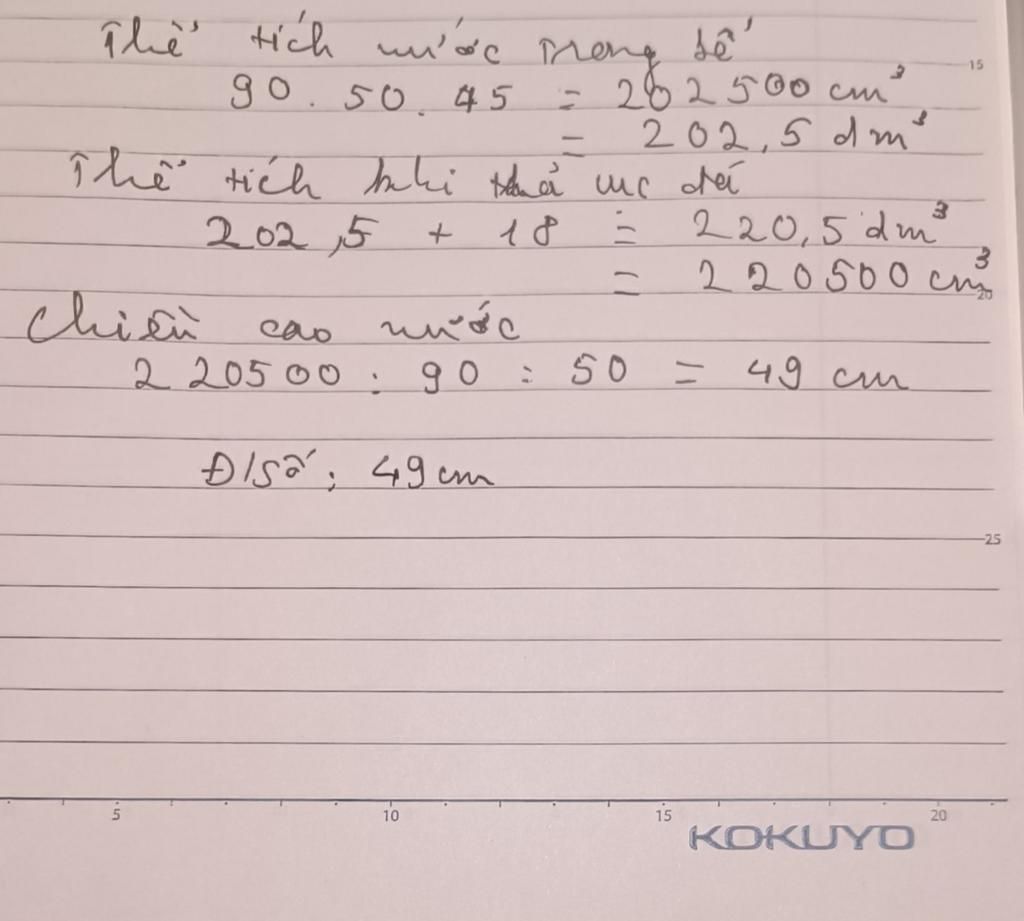 Thể tích nước trong bể
15
90 . 50 . 45 = 202500 cm³
= 202,5 dm³
Thể tích khi thả cục đá
202,5 + 18 = 220,5 dm³
= 220500 cm³
20
Chiều cao nước
220500 : 90 : 50 = 49 cm
Đ/số : 49 cm
25
5 10 15 20
KOKUYO